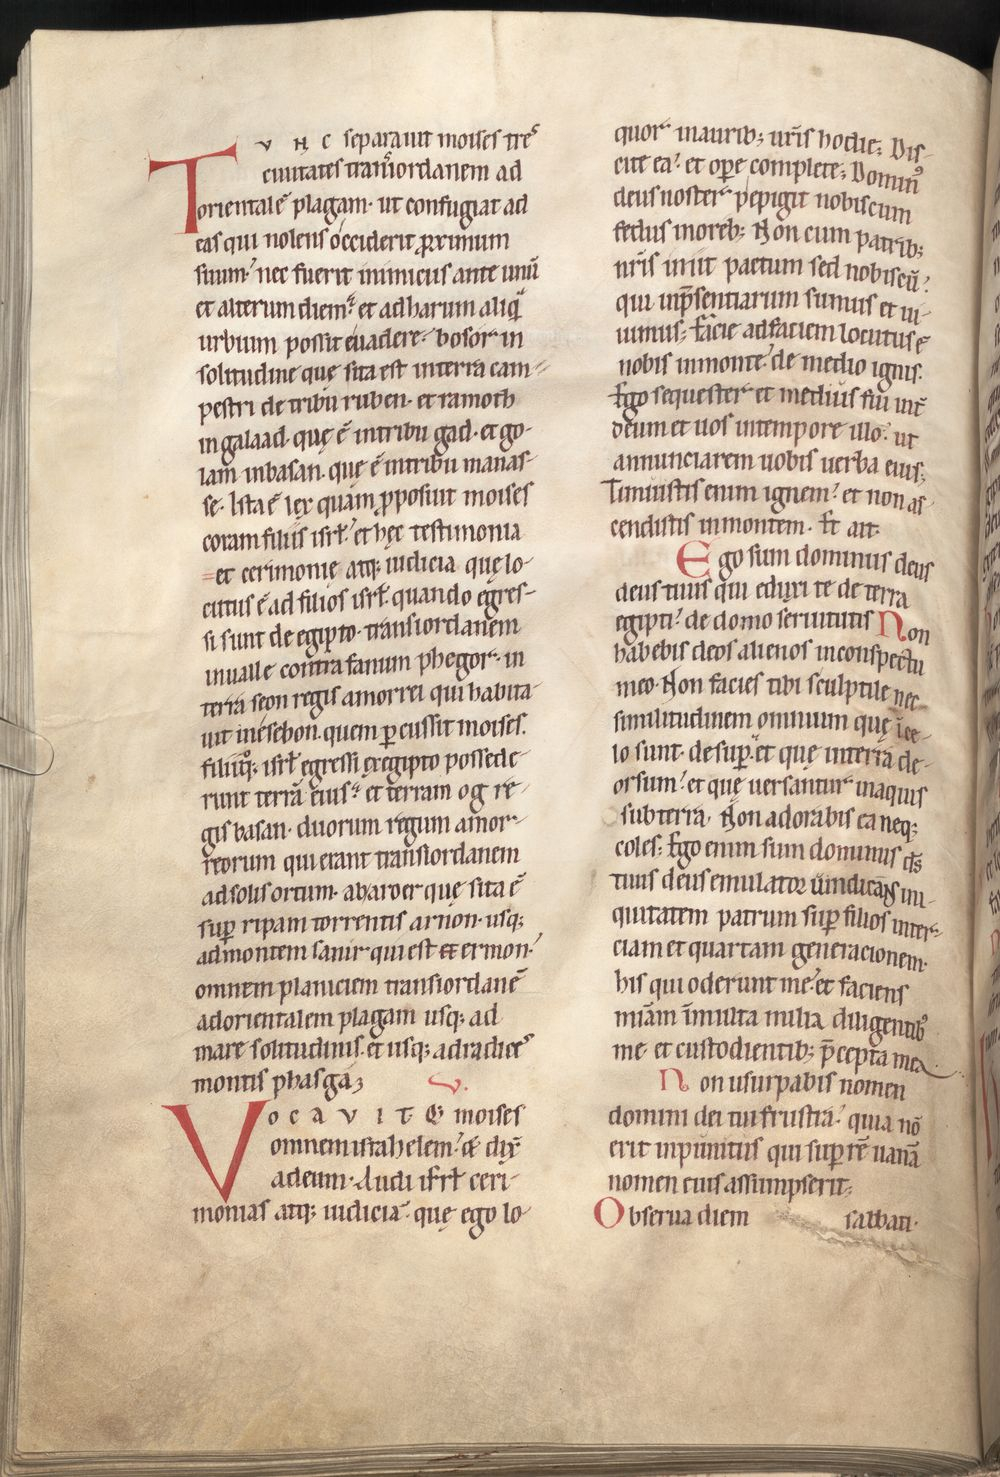 TVNC separauit moises tres
ciuitates transiordanem ad
orientalē plagam· ut confugiat ad
eas qui nolens occiderit ꝓximum
suum· nec fuerit inimicus ante unū
et alterum diem· et ad harum aliquā
urbium possit euadere· bosor in
solitudine quę sita est in terra cam-
pestri de tribu ruben· et ramoth
in galaad· quę ē in tribu gad· et go-
lam in basan· quę ē in tribu manas-
se· Ista ē lex quam ꝓposuit moises
coram filiis isrł· et hęc testimonia
et cerimonię atq; iudicia quę lo-
cutus ē ad filios isrł· quando egres-
si sunt de egipto· transiordanem
in ualle contra fanum phegor· in
terra seon regis amorrei qui habita-
uit in esebon· quem ꝑcussit moises·
filiiq;· isrł egressi ex egipto possede-
runt terrā eius· et terram og re-
gis basan· duorum regum amor-
reorum qui erant transiordanem
ad solis ortum· ab aroer quę sita ē
suꝑ ripam torrentis arnon· usq;
ad montem sanir qui est et ermon·
omnem planiciem transiordanē
ad orientalem plagam usq; ad
mare solitudinis· et usq; ad radices
montis phasga;
V·
VOCAVITQ; moises
omnem israhelem· & dix̄
ad eum· Audi isrł ceri-
monias atq; iudicia· quę ego lo-
quor in aurib; uris hodie; Dis-
cite ea· et oꝑe complete; Dominus
deus noster pepigit nobiscum
fedus in oreb; Non cum patrib;
nris iniit pactum sed nobiscū·
qui inp̄sentiarum sumus et ui-
uimus; Facie ad faciem locutus ē
nobis in monte· de medio ignis·
Ego sequester et medius fui int̄
deum et uos in tempore illo· ut
annunciarem uobis uerba eius;
Timuistis enim ignem· et non as-
cendistis in montem· Et ait·
Ego sum dominus deus
deus tuus qui eduxi te de terra
egipti· de domo seruitutis Non
habebis deos alienos in conspectu
meo· Non facies tibi sculptile nec
similitudinem omnium quę ī ce-
lo sunt· desuꝑ· et quę in terra de-
orsum· et quę uersantur in aquis
sub terra· Non adorabis ea neq;
coles; Ego enim sum dominus ds̄
tuus deus emulator uindicans ini-
quitatem patrum suꝑ filios in ter-
ciam et quartam generacionem·
his qui oderunt me· et faciens
miām ī multa milia diligentibus
me et custodientib; p̄cepta mea
Non usurpabis nomen
domini dei tui frustra· quia nō
erit inpunitus qui suꝑ rē uanā
nomen eius assumpserit;
Obserua diem sabbati·